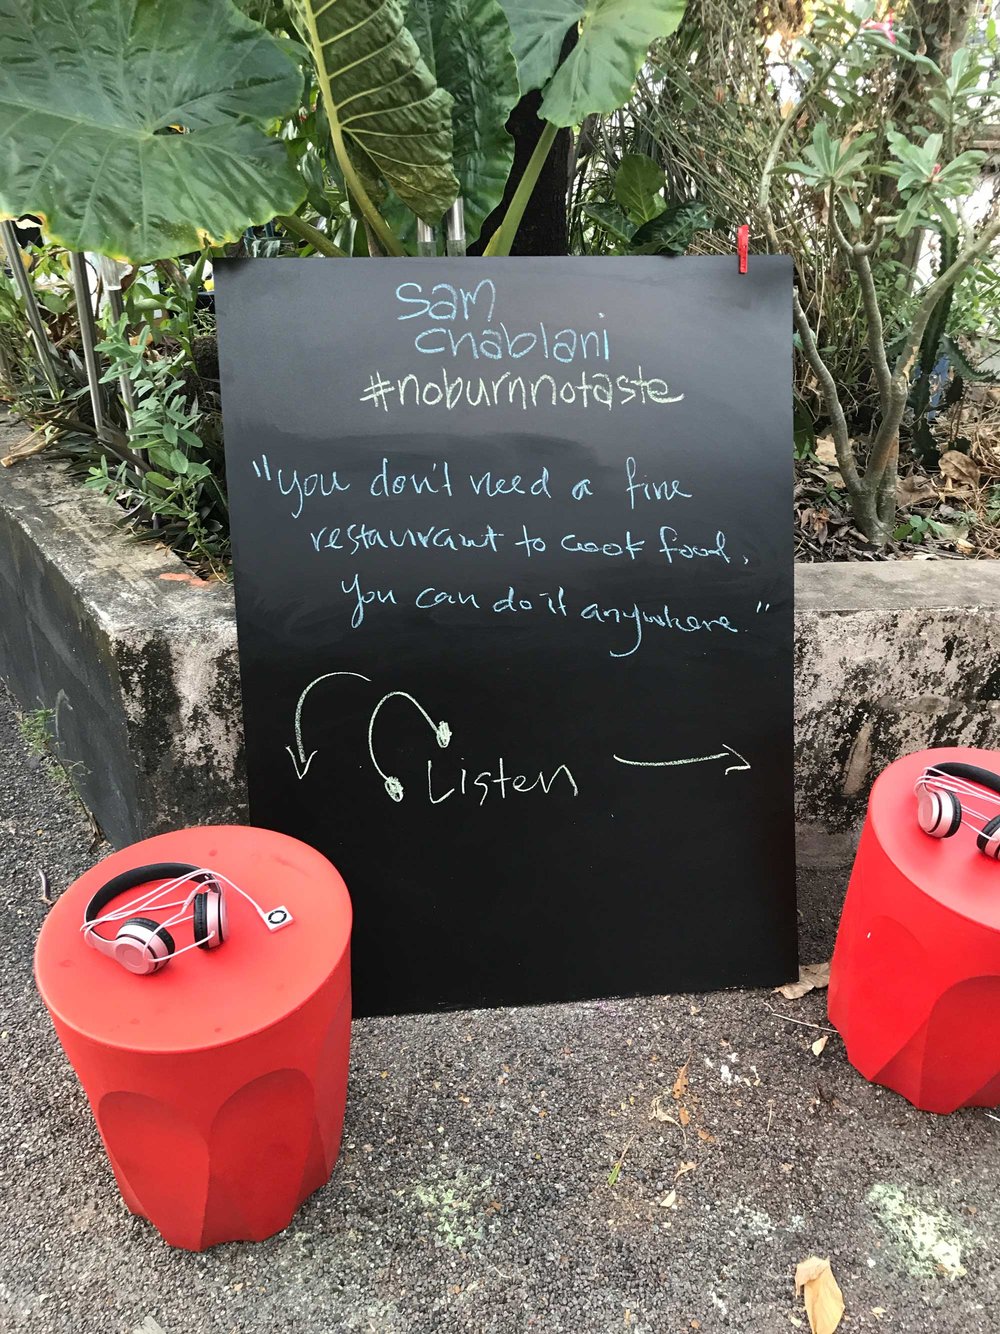 sam
chablani
#noburnnotaste
"you don't need a fine
restaurant to cook food,
you can do it anywhere."
Listen